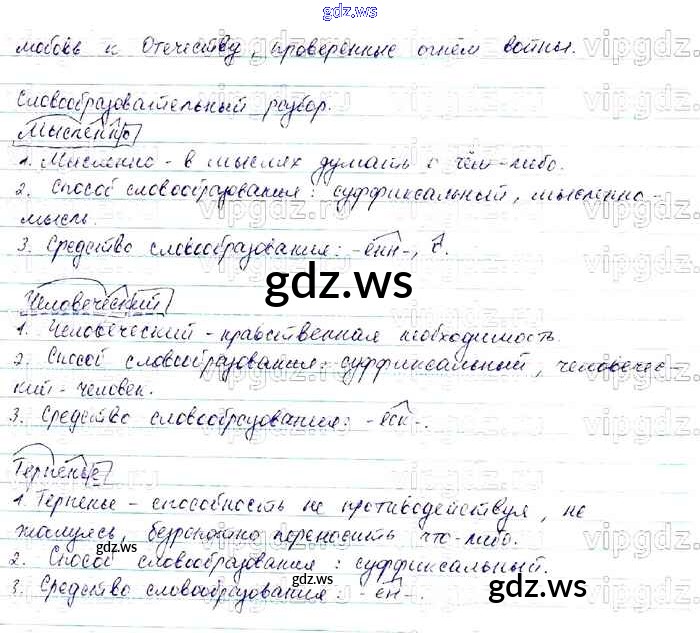 gdz.ws
любовь к Отечеству, проверенные огнём войны.
Словообразовательный разбор.
Мысленно
1. Мысленно - в мыслях думать о чём-либо.
2. Способ словообразования: суффиксальный, мысленно -
мысль.
3. Средство словообразования: -енн-,
gdz.ws
Человеческий
1. Человеческий - нравственная необходимость.
2. Способ словообразования: суффиксальный, человечес-
кий - человек.
3. Средство словообразования: -еск-.
Терпенье
1. Терпенье - способность не противодействуя, не
жалуясь, безропотно переносить что-либо.
gdz.ws
2. Способ словообразования: суффиксальный.
gdz.ws
3. Средство словообразования: -ен-.
gdz.ws